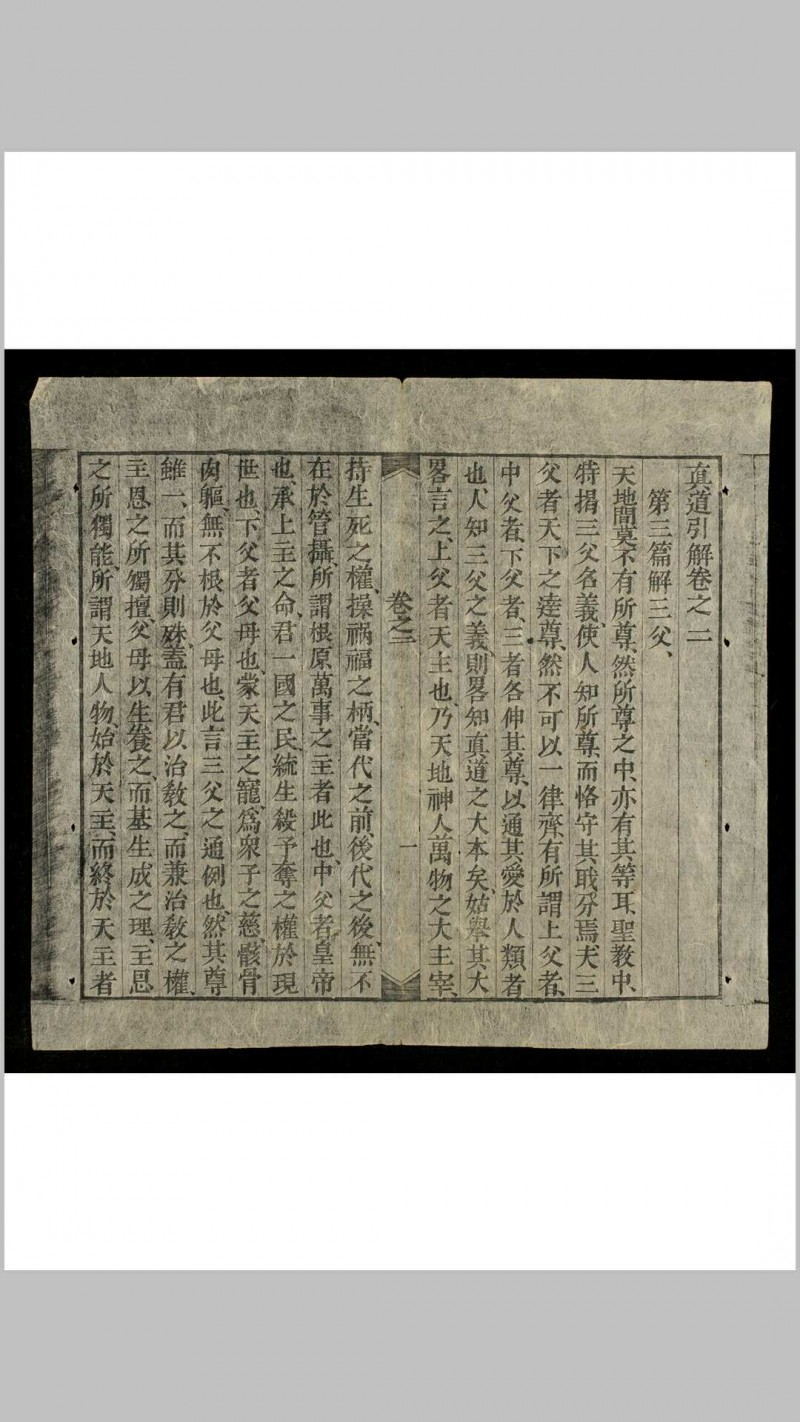 真道引解卷之二
第三篇解三父、
天地間莫不有所尊、然所尊之中、亦有其等耳、聖教中、
特揭三父名義、使人知所尊、而恪守其職分焉、夫三
父者天下之逹尊、然不可以一律齊、有所謂上父者、
中父者、下父者、三者各伸其尊、以通其愛於人類者
也、人知三父之義、則畧知真道之大本矣、姑舉其大
畧言之、上父者天主也、乃天地神人萬物之大主宰、
卷之二
一
持生死之權、操禍福之柄、當代之前、後代之後、無不
在於管攝、所謂根原萬事之主者此也、中父者皇帝
也、承上主之命、君一國之民、統生殺予奪之權於現
世也、下父者父母也、蒙天主之寵、爲衆子之慈、骸骨
肉軀、無不根於父母也、此言三父之通例也、然其尊
雖一、而其分則殊、蓋有君以治敎之、而兼治敎之權、
主恩之所獨擅、父母以生養之、而基生成之理、主恩
之所獨能、所謂天地人物、始於天主、而終於天主者